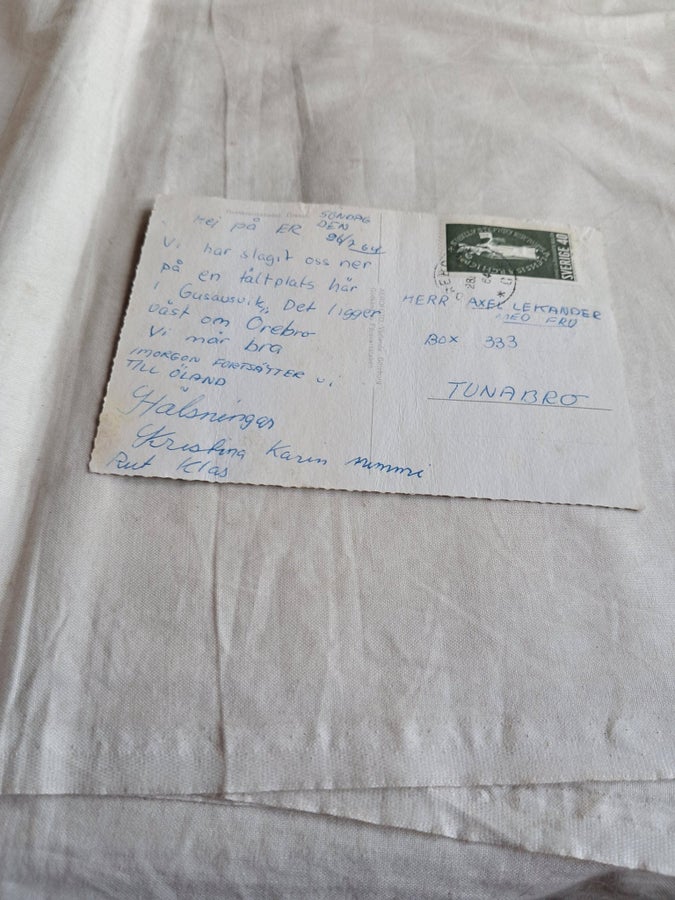 Hej på ER
SÖNDAG
DEN
26/7 64
Vi har slagit oss ner
på en tältplats här
i Gusausvik, Det ligger
väst om Örebro
Vi mår bra
IMORGON FORTSÄTTER VI
TILL ÖLAND
Hälsningar
Kristina Karin mimmi
Rut Klas
SVERIGE 40
HERR AXEL LEKANDER
MED FRU
BOX 333
TUNABRO